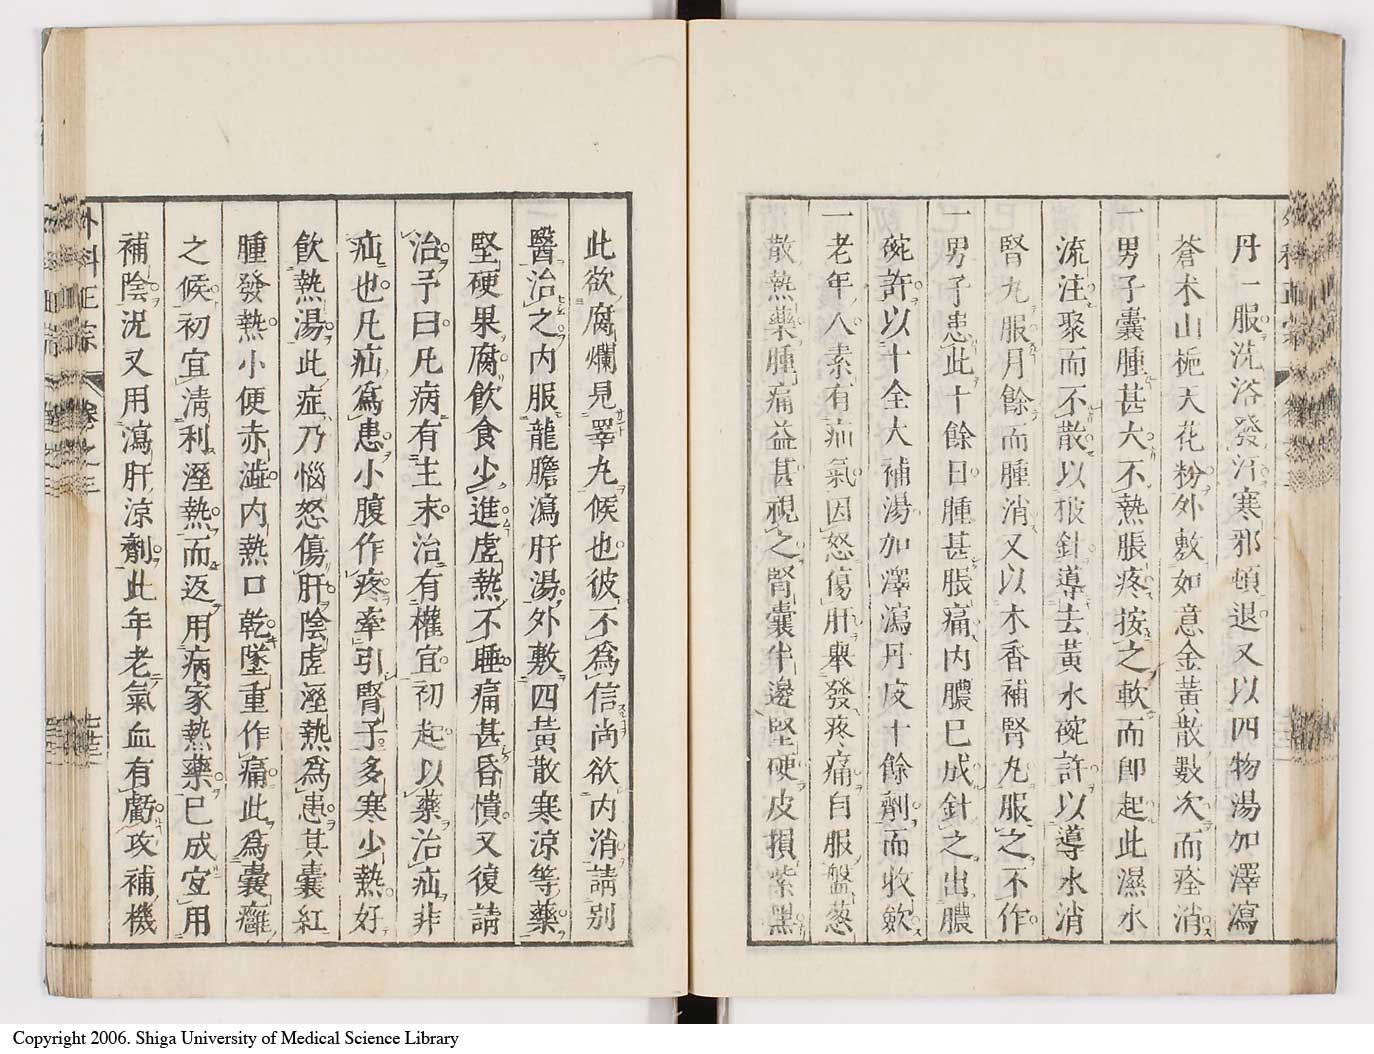 丹一服洗浴發汗寒邪頓退又以四物湯加澤瀉
蒼朮山梔天花粉外敷如意金黃散數次而痊消
一男子囊腫甚大不熱脹疼按之軟而即起此濕水
流注聚而不散以披針導去黃水碗許以導水消
腎丸服月餘而腫消又以木香補腎丸服之不作
一男子患此十餘日腫甚脹痛内膿已成針之出膿
碗許以十全大補湯加澤瀉丹皮十餘劑而收歛
一老年人素有疝氣因怒傷肝舉發疼痛自服盤葱
散熱藥腫痛益甚視之腎囊半邊堅硬皮損紫黑
此欲腐爛見睪丸候也彼不爲信尚欲内消請别
醫治之内服龍膽瀉肝湯外敷四黃散寒涼等藥
堅硬果腐飲食少進虛熱不睡痛甚昏憒又復請
治予曰凡病有主末治有權宜初起以藥治疝非
疝也凡疝爲患小腹作疼牽引腎子多寒少熱好
飲熱湯此症乃惱怒傷肝陰虛溼熱爲患其囊紅
腫發熱小便赤澁内熱口乾墜重作痛此爲囊癰
之候初宜清利溼熱而返用病家熱藥已成宜用
補陰況又用瀉肝涼劑此年老氣血有虧攻補機
外科正宗 卷之三
Copyright 2006. Shiga University of Medical Science Library